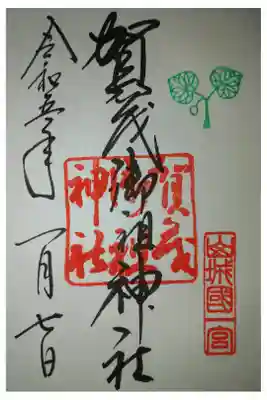 山城國一宮
賀茂御祖神社
賀茂
神社
令和五年一月七日